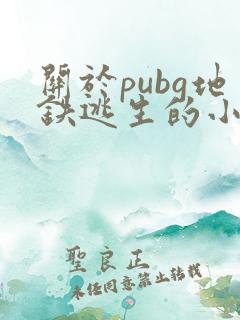 關於pubg地
鉄逃生的小
聖良正
未经同意禁止转载